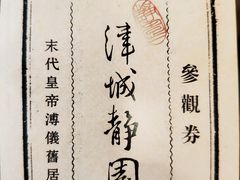 參觀券
津城静園
末代皇帝溥儀舊居